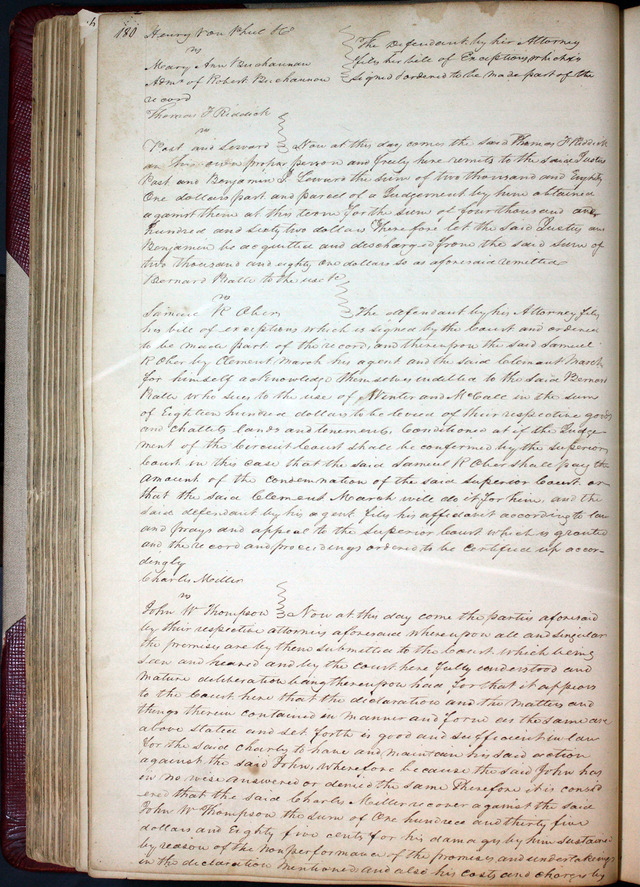 180 Henry Von Phul &c
vs
The Defendant by his Attorney
Mary Ann Buchannan
files his bill of Exceptions which is
Admx of Robert Buchannon
signed & ordered to be made part of the
record
Thomas F Riddick
vs
Post and Leward Now at this day comes the said Thomas F Riddick
in his own proper person and freely here remits to the said Justus
Post and Benjamin J. Leward the sum of two thousand and eighty
One dollars part and parcel of a Judgement by him obtained
against them at this term for the sum of four thousand one
hundred and sixty two dollars Therefore let the said Justus and
Benjamin be acquitted and discharged from the said sum of
two thousand and eighty one dollars so as aforesaid remitted
Bernard Ralle to the use &c
vs
Samuel R Ober The defendant by his Attorney files
his bill of exceptions which is signed by the Court and ordered
to be made part of the record, and thereupon the said Samuel
R Ober by Clement March his agent and the said Clement March
for himself acknowledge themselves indebted to the said Bernard
Ralle who sues to the use of Minter and McCall in the sum
of Eighteen hundred dollars to be levied of their respective goods
and chattels lands and tenements. Conditioned at if the Judge-
ment of the Circuit Court shall be confirmed by the Superior
Court in this case that the said Samuel R Ober shall pay the
amount of the condemnation of the said Superior Court or
that the said Clement March will do it for him. and the
said defendant by his agent files his affidavit according to law
and prays and appeal to the Superior Court which is granted
and the record and proceedings ordered to be certified up accor-
dingly
Charles Miller
vs
John W Thompson Now at this day come the parties aforesaid
by their respective attornies aforesaid whereupon all and singular
the premises are by them submitted to the Court which being
seen and heared and by the court here fully understood and
mature deliberation being thereupon had for that it appears
to the Court here that the declaration and the matters and
things therein contained in manner and form as the same are
above stated and set forth is good and sufficient in law
for the said Charles to have and maintain his said action
against the said John, wherefore because the said John has
in no wise answered or denied the same Therefore it is consid
ered that the said Charles Miller recover against the said
John W Thompson the sum of One hundred and thirty five
dollars and Eighty five cents for his damages by him sustained
by reason of the nonperformance of the promises and undertakings
in the declaration mentioned and also his costs and charges by